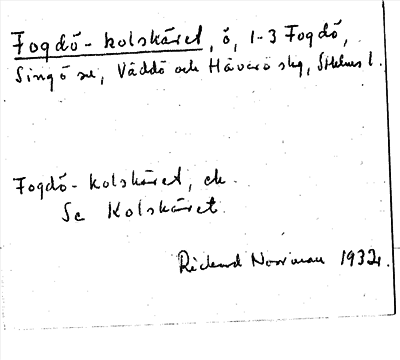 Fogdö-kolskäret, ö, 1-3 Fogdö,
Singö sn, Väddö och Häverö skg, Sthlms l.
Fogdö-kolskäret, ek.
Se Kolskäret.
Rickard Norrman 1932.